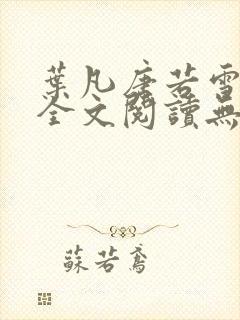 葉凡唐若雪
全文閱讀無
蘇若鳶